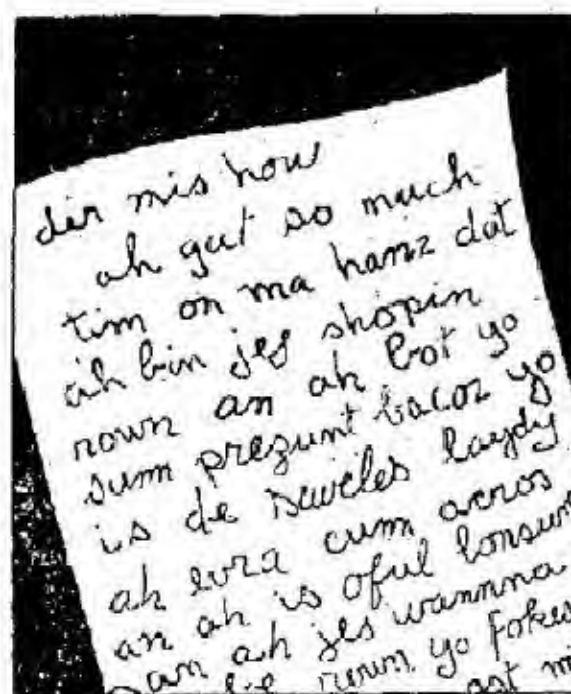 dir mis how
ah gut so much
tim on ma hanz dat
ah bin jes shopin
rown an ah bot yo
sum prezunt bacoz yo
is de swelles laydy
ah evra cum acros
an ah is oful lonsum
an ah jes wannna
be rown yo fokes
ast mi